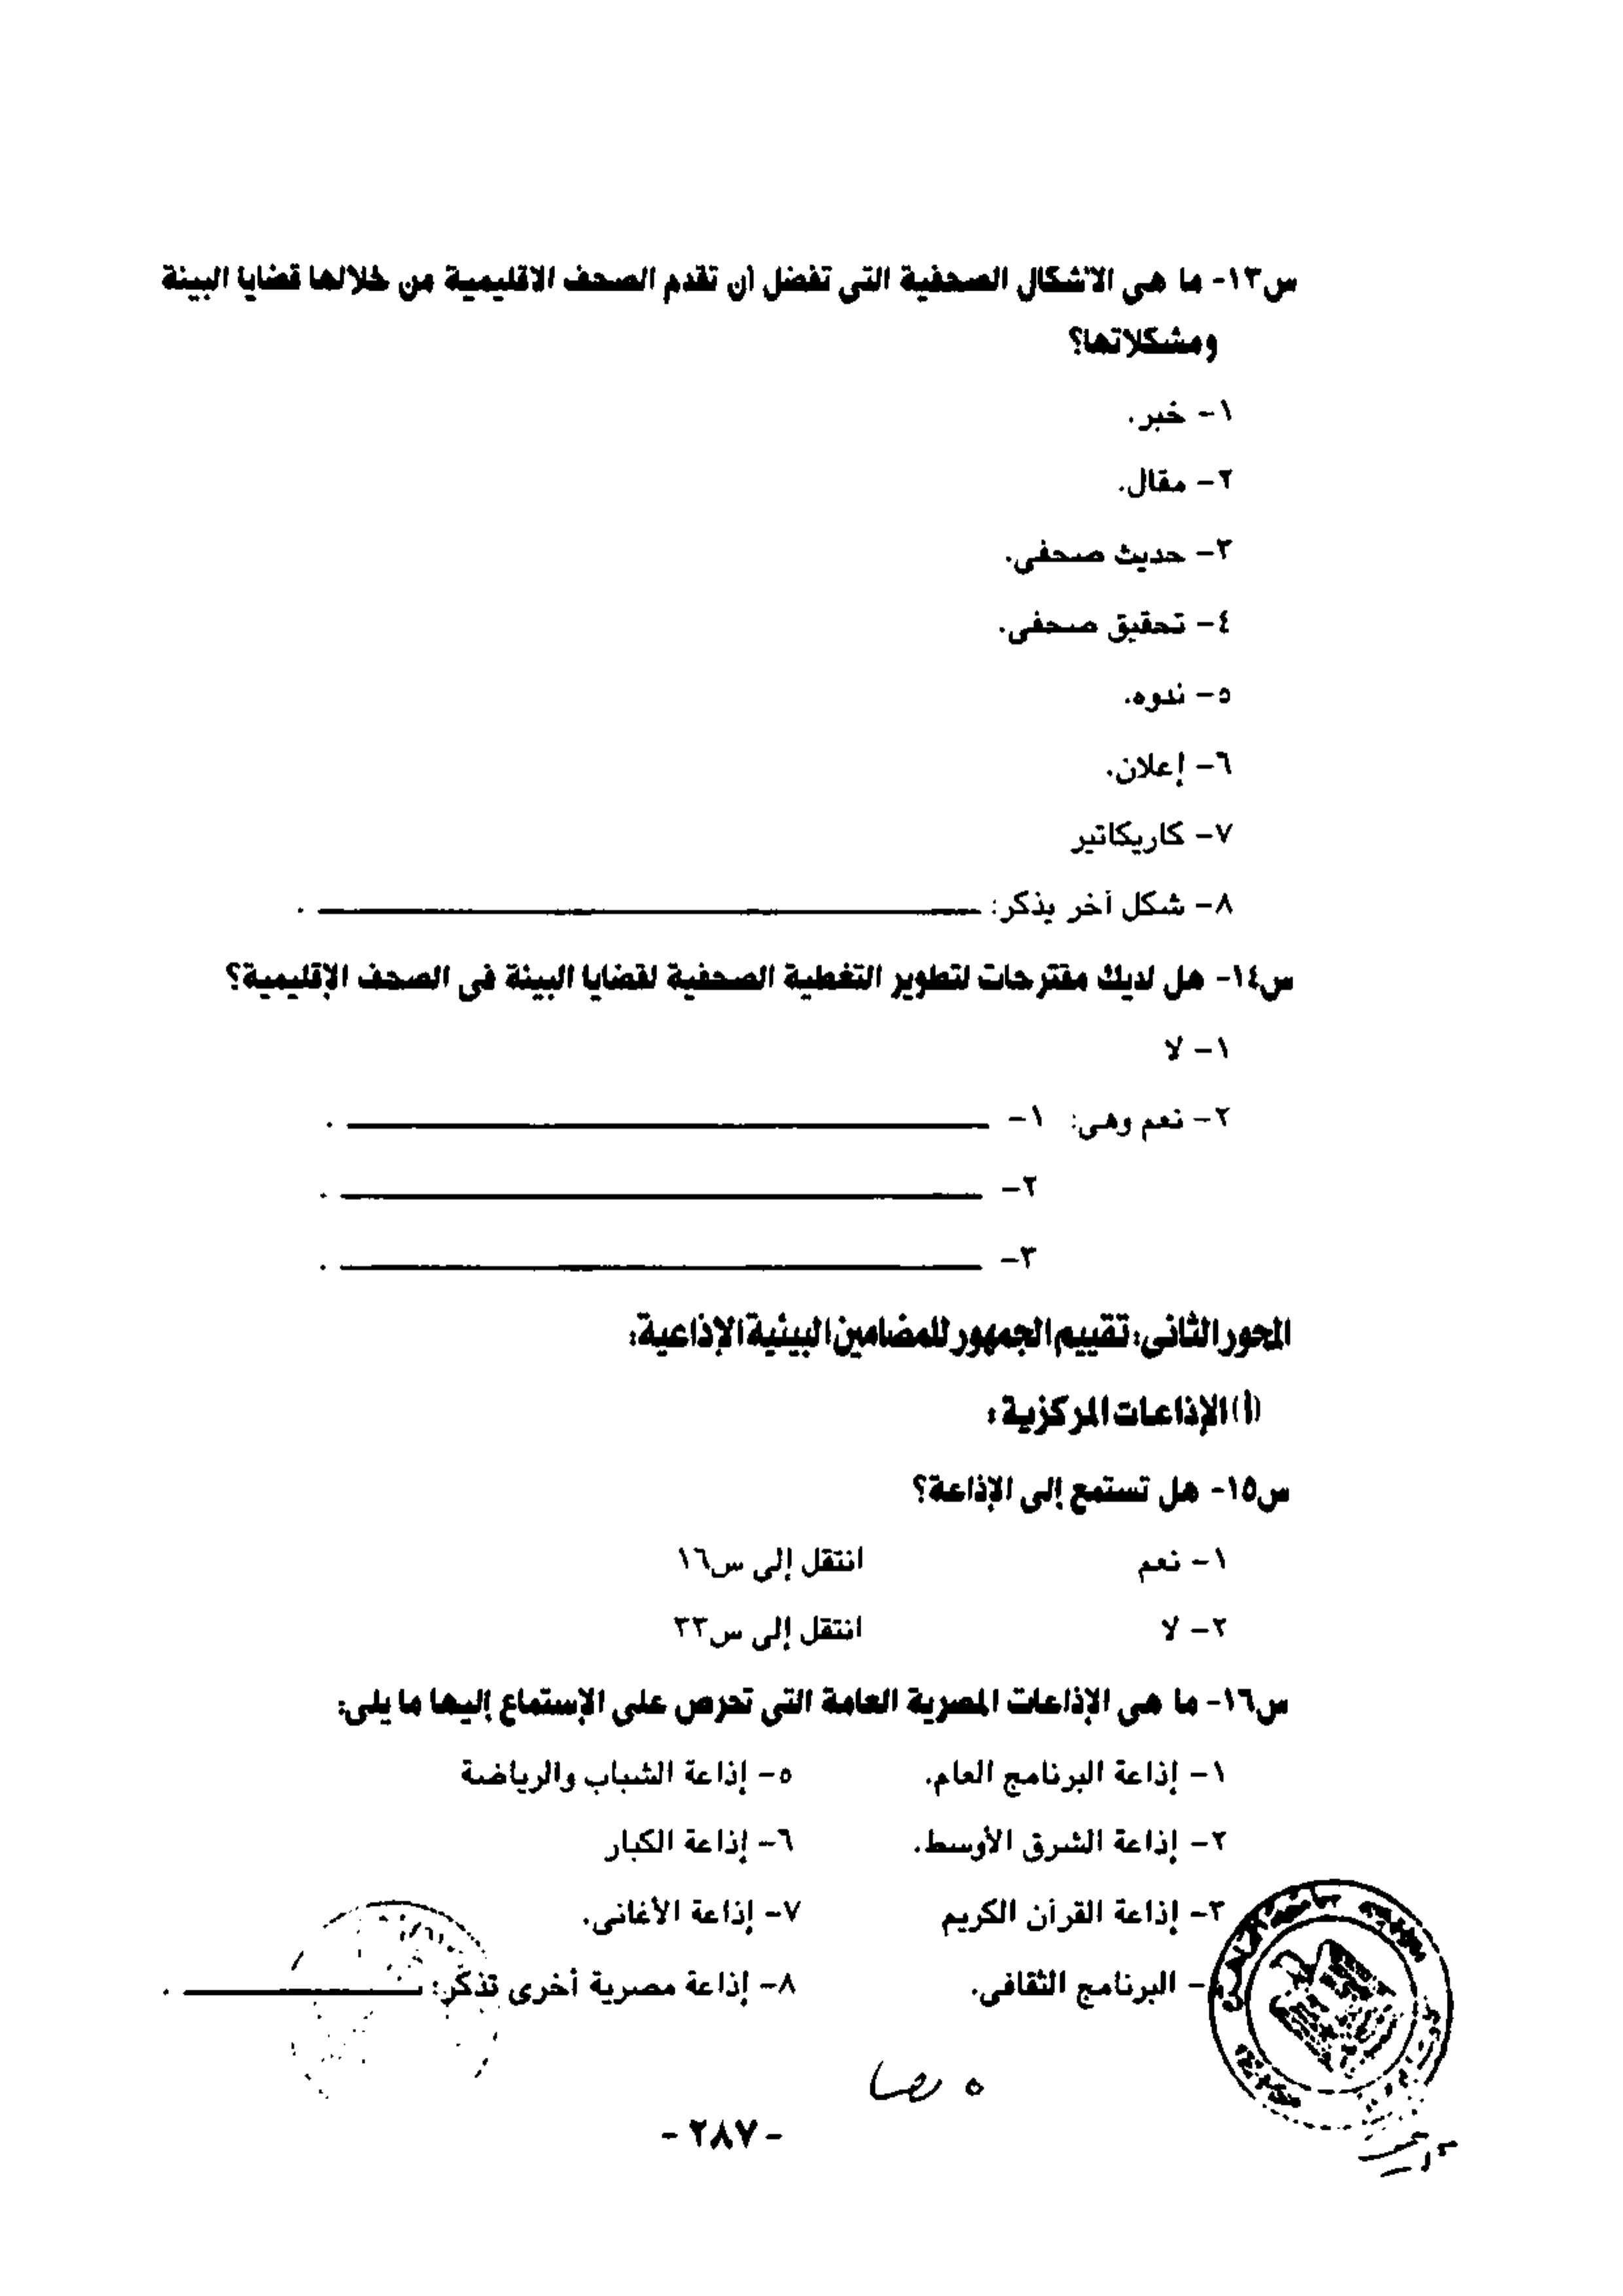 س١٣- ما هى الأشكال الصحفية التى تفضل أن تقدم الصحف الاقليمية من خلالها قضايا البيئة
ومشكلاتها؟
١- خبر.
٢- مقال.
٣- حديث صحفى.
٤- تحقيق صحفى.
٥- ندوه.
٦- إعلان.
٧- كاريكاتير
٨- شكل آخر يذكر: ـــــــــــــــــ .
س١٤- هل لديك مقترحات لتطوير التغطية الصحفية لقضايا البيئة فى الصحف الإقليمية؟
١- لا
٢- نعم وهى: ١- ـــــــــــــــــ .
٢- ـــــــــــــــــ .
٣- ـــــــــــــــــ .
المحور الثانى: تقييم الجمهور للمضامين البيئية الإذاعية:
(أ) الإذاعات المركزية :
س١٥- هل تستمع إلى الإذاعة؟
١- نعم انتقل إلى س١٦
٢- لا انتقل إلى س٣٣
س١٦- ما هى الإذاعات المصرية العامة التى تحرص على الإستماع إليها ما يلى:
١- إذاعة البرنامج العام. ٥- إذاعة الشباب والرياضة
٢- إذاعة الشرق الأوسط. ٦- إذاعة الكبار
٣- إذاعة القرآن الكريم ٧- إذاعة الأغانى.
- البرنامج الثقافى. ٨- إذاعة مصرية أخرى تذكر: ـــــــــــ .
- ٢٨٧ -